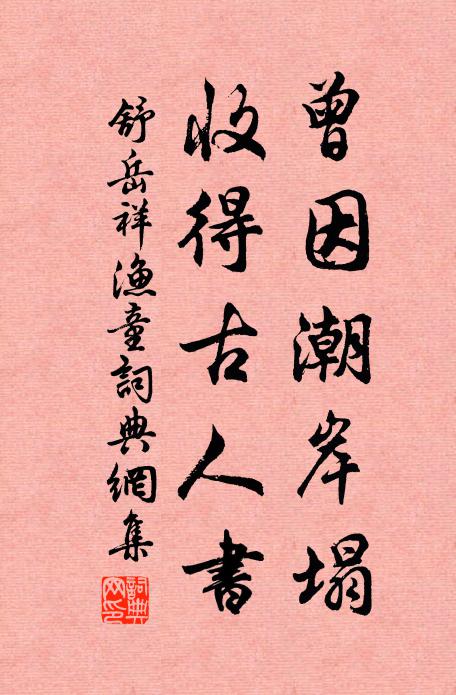 曾因潮岸塌
收得古人書
舒岳祥漁童詞典網集
詞典网印